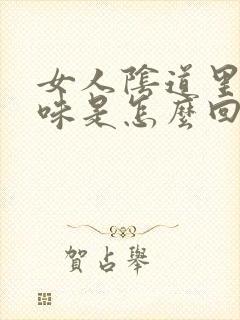 女人陰道里
味是怎麼回
賀占舉